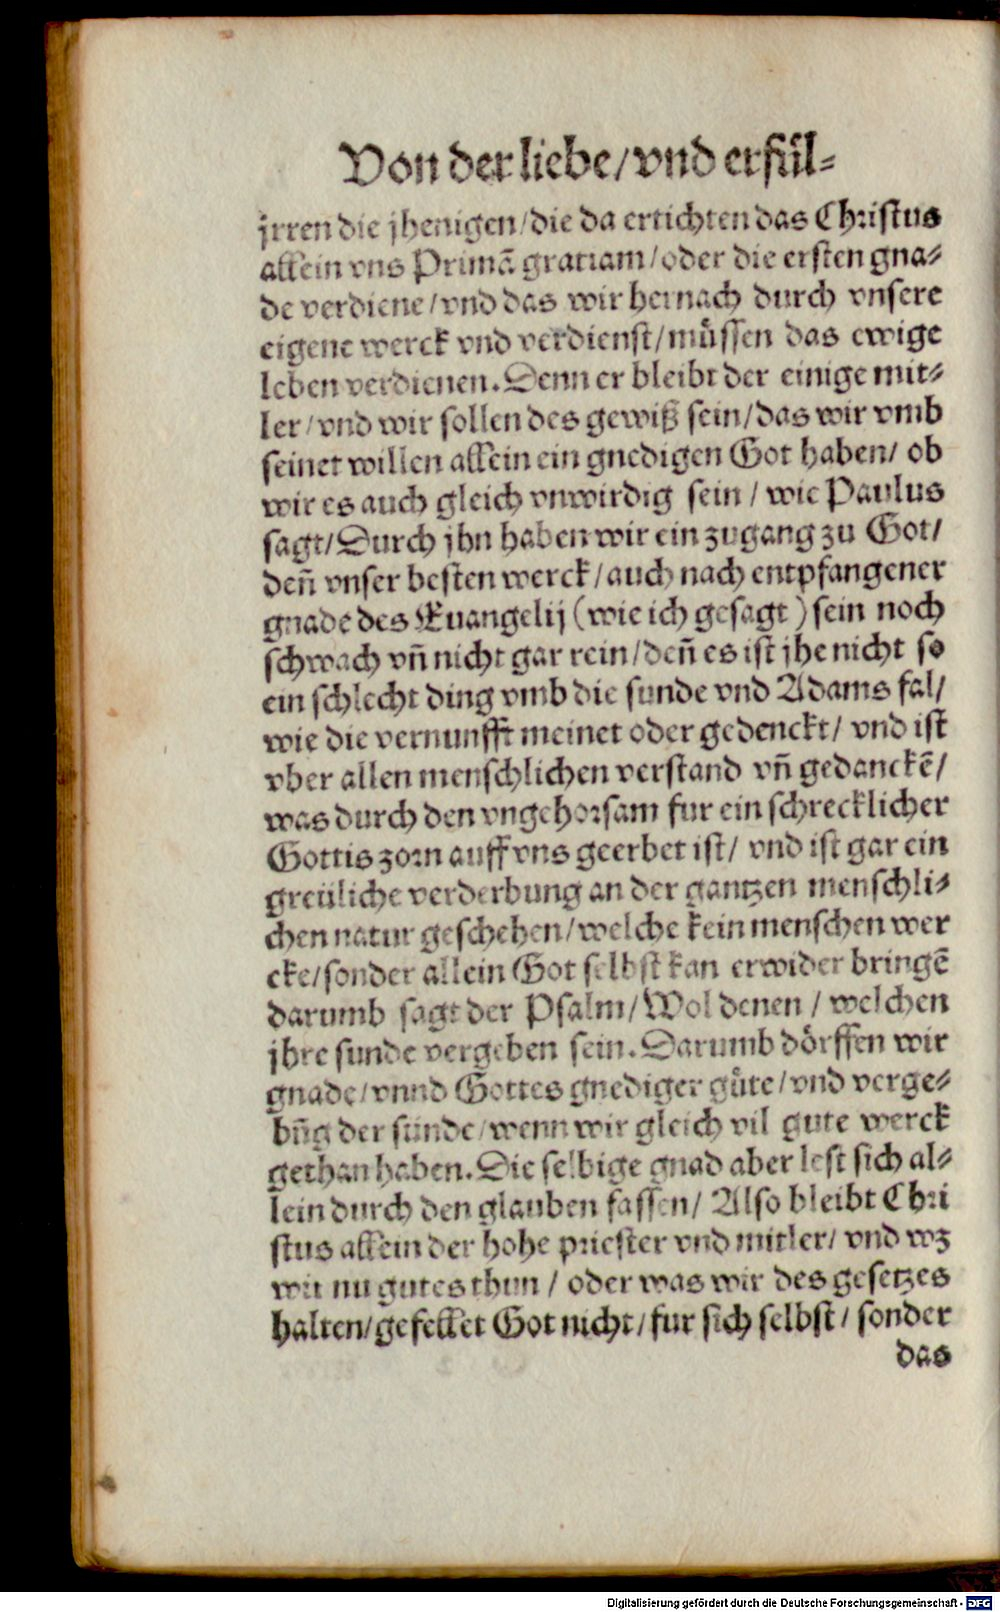 Von der liebe/vnd erfül⸗
jrren die jhenigen/die da ertichten das Christus
allein vns Primā gratiam/oder die ersten gna⸗
de verdiene/vnd das wir hernach durch vnsere
eigene werck vnd verdienst/müssen das ewige
leben verdienen.Denn er bleibt der einige mit⸗
ler/vnd wir sollen des gewiß sein/das wir vmb
seinet willen allein ein gnedigen Got haben/ ob
wir es auch gleich vnwirdig sein / wie Paulus
sagt/Durch jhn haben wir ein zugang zu Got/
deñ vnser besten werck/auch nach entpfangener
gnade des Euangelij (wie ich gesagt) sein noch
schwach vñ nicht gar rein/deñ es ist jhe nicht so
ein schlecht ding vmb die sunde vnd Adams fal/
wie die vernunfft meinet oder gedenckt/ vnd ist
vber allen menschlichen verstand vñ gedanckē/
was durch den vngehorsam fur ein schrecklicher
Gottis zorn auff vns geerbet ist/ vnd ist gar ein
greüliche verderbung an der gantzen menschli⸗
chen natur geschehen/welche kein menschen wer
cke/sonder allein Got selbst kan erwider bringē
darumb sagt der Psalm/Wol denen / welchen
jhre sunde vergeben sein.Darumb dörffen wir
gnade/vnnd Gottes gnediger güte/vnd verge⸗
būg der sunde/wenn wir gleich vil gute werck
gethan haben.Die selbige gnad aber lest sich al⸗
lein durch den glauben fassen/ Also bleibt Chri
stus allein der hohe priester vnd mitler/ vnd wz
wir nu gutes thun / oder was wir des gesetzes
halten/gefellet Got nicht/fur sich selbst/ sonder
das
Digitalisierung gefördert durch die Deutsche Forschungsgemeinschaft - DFG